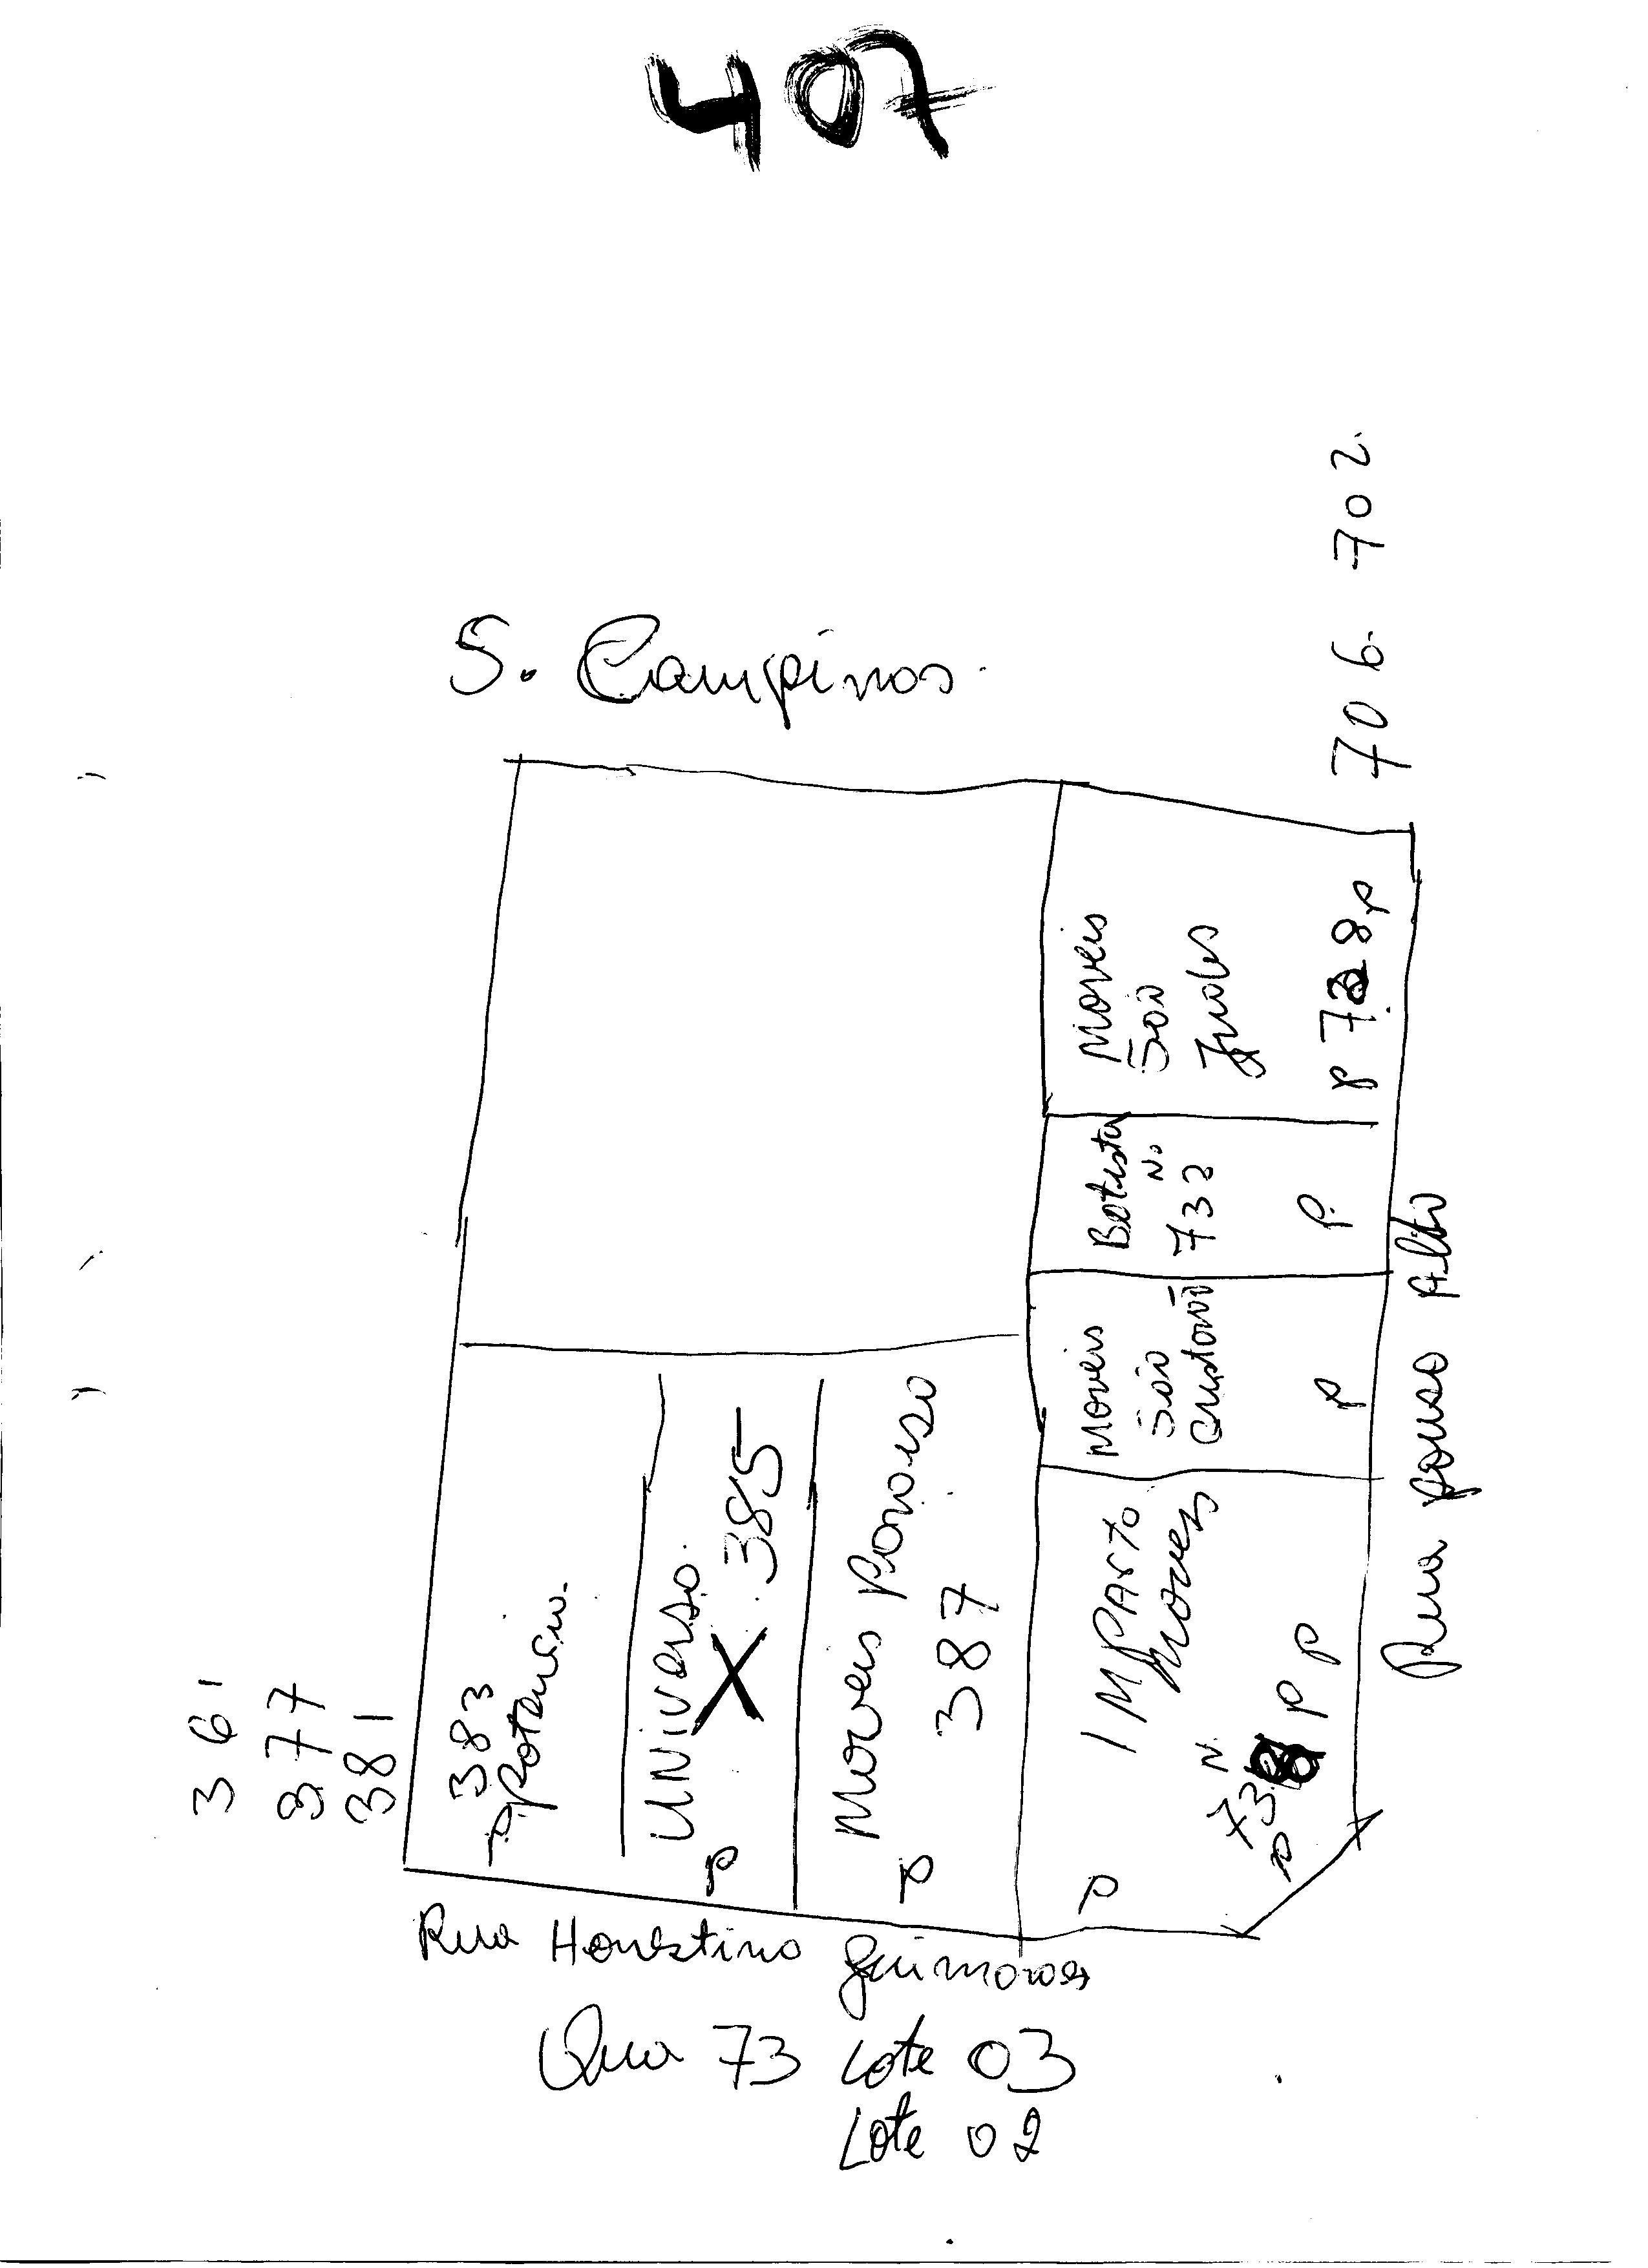 407
S. Campinas.
706. 702.
Moveis
São
P 728 P
Batista
N.
733
P.
Moveis
São
P
361
377
381
383
P
UNiverso.
X .385
P
Moveis Paraiso
387
P
IMPArto
Moveis
N.
738 P P
P
P
Rua Pouso Alto
Rua Honestino Guimaraes
Qua 73 Lote 03
Lote 02